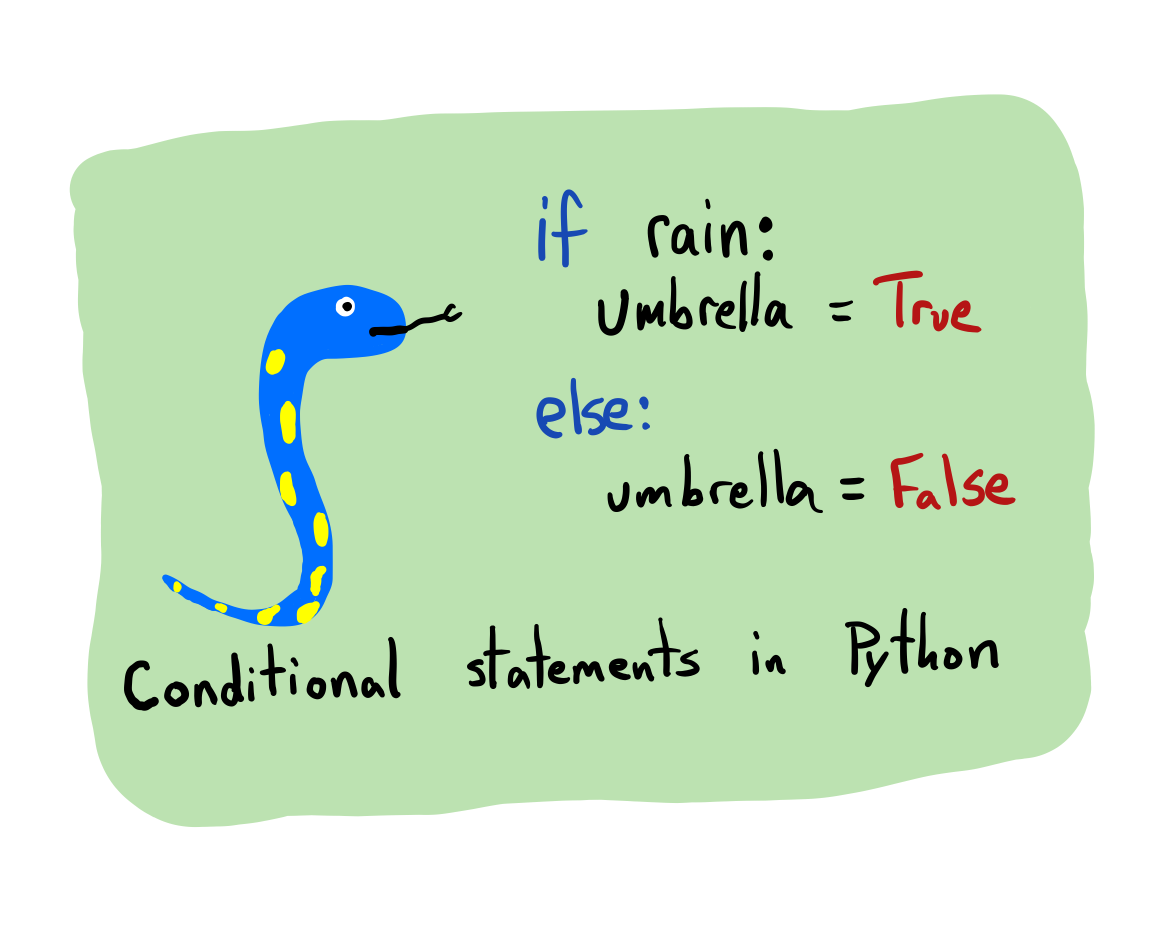 if rain:
umbrella = True
else:
umbrella = False
Conditional statements in Python